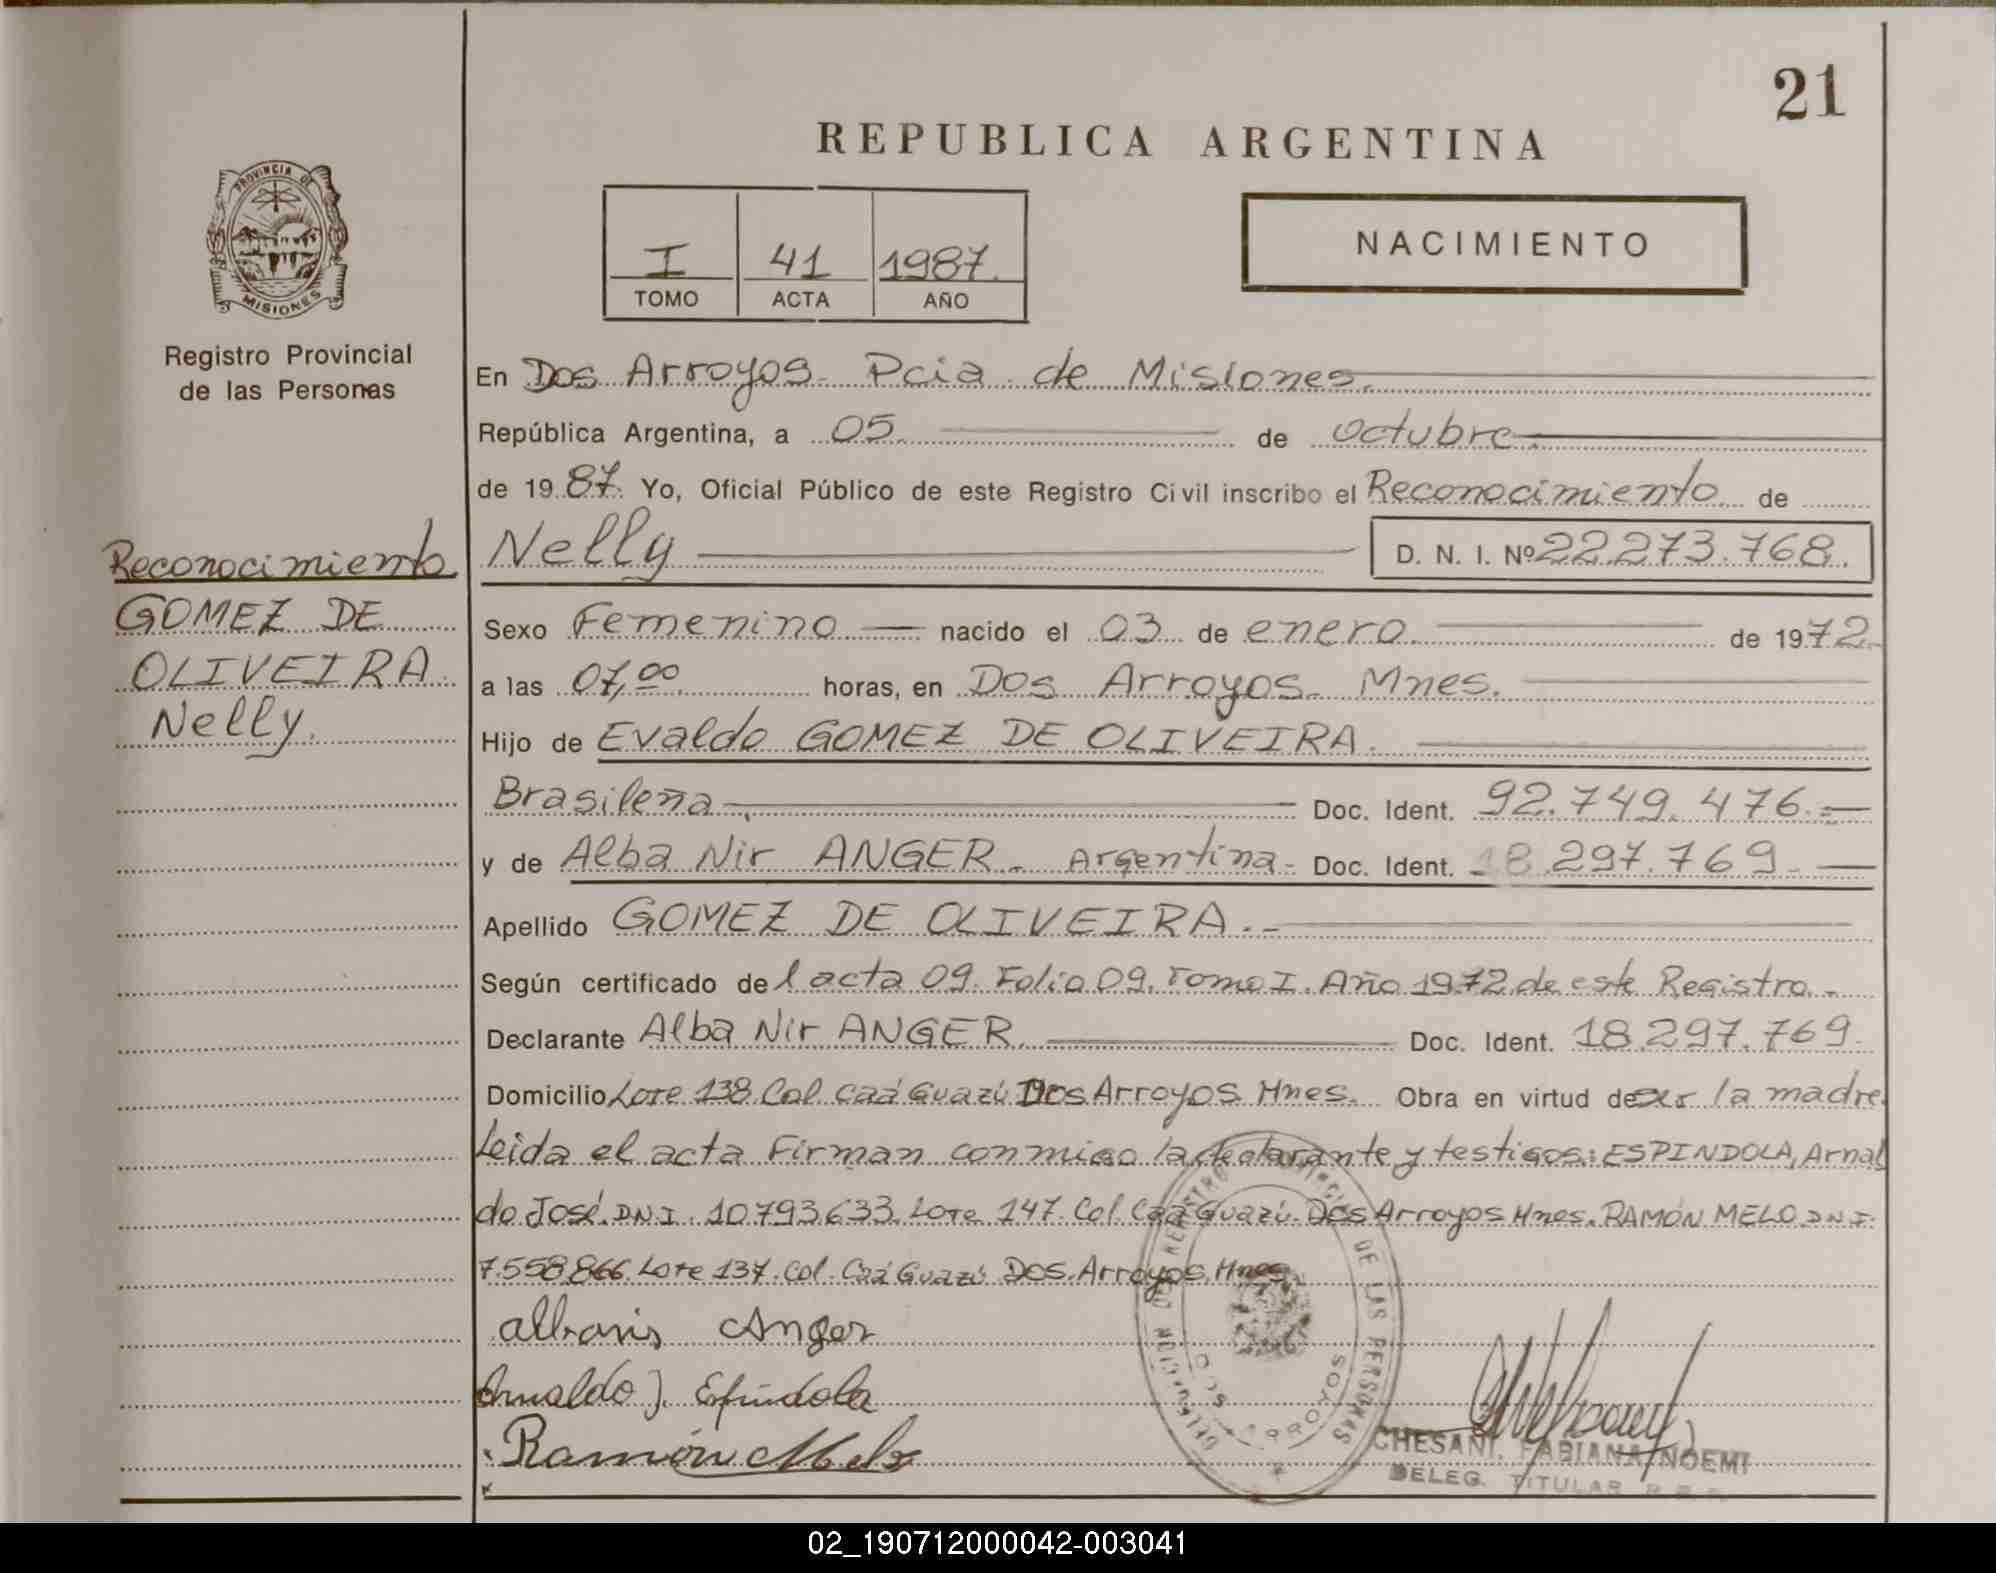 21
REPUBLICA ARGENTINA
PROVINCIA DE
MISIONES
I 41 1987.
TOMO ACTA AÑO
NACIMIENTO
Registro Provincial
de las Personas
En Dos Arroyos. Pcia. de Misiones.
República Argentina, a 05. de octubre.
de 1987. Yo, Oficial Público de este Registro Civil inscribo el Reconocimiento de
Nelly D. N. I. Nº 22.273.768.
Reconocimiento
GOMEZ DE
OLIVEIRA.
Nelly.
Sexo Femenino nacido el 03 de enero. de 1972.
a las 07,00 horas, en Dos Arroyos. Mnes.
Hijo de Evaldo GOMEZ DE OLIVEIRA.
Brasileña Doc. Ident. 92.749.476.=
y de Alba Nir ANGER. Argentina- Doc. Ident. 18.297.769.
Apellido GOMEZ DE OLIVEIRA.-
Según certificado del acta 09. Folio 09. Tomo I. Año 1972 de este Registro.-
Declarante Alba Nir ANGER. Doc. Ident. 18.297.769.
Domicilio Lote 138 Col. Caá Guazú Dos Arroyos Mnes. Obra en virtud de ser la madre.
Leida el acta Firman conmigo la declarante y testigos: ESPINDOLA, Arnal
do José. DNI. 10793633. Lote 147. Col. Caá Guazú. Dos Arroyos Mnes. RAMÓN MELO DNI.
7.558.866. Lote 137. Col. Caá Guazú Dos Arroyos. Mnes.
Anger
Arnaldo J. Espíndola
Ramón Melo
DELEGACION DEL REGISTRO PROVINCIAL DE LAS PERSONAS
DOS ARROYOS
CHESANI, FABIANA NOEMI
DELEG. TITULAR R.P.P.
02_190712000042-003041